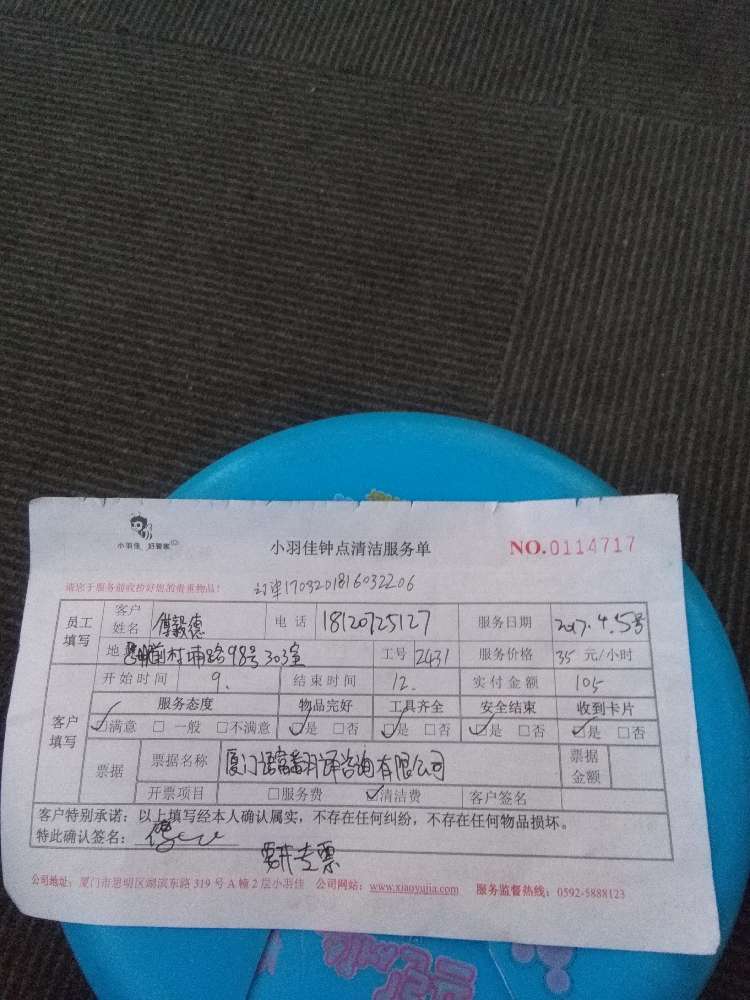 小羽佳 好管家
小羽佳钟点清洁服务单
NO.0114717
请您于服务前收拾好您的贵重物品!
订单1703201816032206
员工填写 客户姓名 傅毅德 电话 18120725127 服务日期 2017.4.5号
地 村埔路98号303室 工号 2431 服务价格 35 元/小时
开始时间 9. 结束时间 12. 实付金额 105
客户填写 服务态度 物品完好 工具齐全 安全结束 收到卡片
☑满意 □一般 □不满意 ☑是 □否 ☑是 □否 ☑是 □否 ☑是 □否
票据 票据名称 厦门语富翻译咨询有限公司 票据金额
开票项目 □服务费 ☑清洁费 客户签名
客户特别承诺:以上填写经本人确认属实,不存在任何纠纷,不存在任何物品损坏。
特此确认签名:
要开专票
公司地址:厦门市思明区湖滨东路 319 号 A 幢 2 层小羽佳 公司网站:www.xiaoyujia.com 服务监督热线:0592-5888123